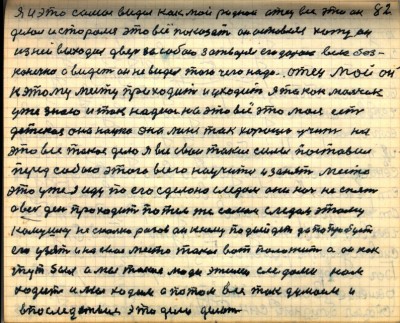 Я и это самое видел как мой родной отец все это он 82
делал и строил это всё показат он оставил хату он
из ней выходил двер за собою затворил его дорога вела бес-
конечно а видит он не видел этого чего надо. отец мой он
к этому месту приходит и уходит я так он молчал
уже знаю и так надеюс на это всё это моя ест
детская она наука она мне так хорошо учит на
это все такое дело я все свои такие силы поставил
перед собою этого всего научити и занят место
это уже я иду по его следам они нач не спят
а вес ден проходит по тех же самых следах этому
камушку не сколко разов он к нему подойдет да попробует
его узят и на свое место такое вот положит а он как
тут был а мы такие люди этими следами нам
ходит и мы ходим а потом все так думаем и
впоследствия это дело делат